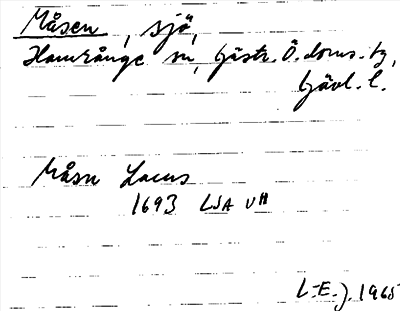 Måsen, sjö,
Hamrånge sn, Gästr. Ö. doms. tg,
Gävl. l.
Måsn Lacus
1693 LSA U11
L-E. J. 1965